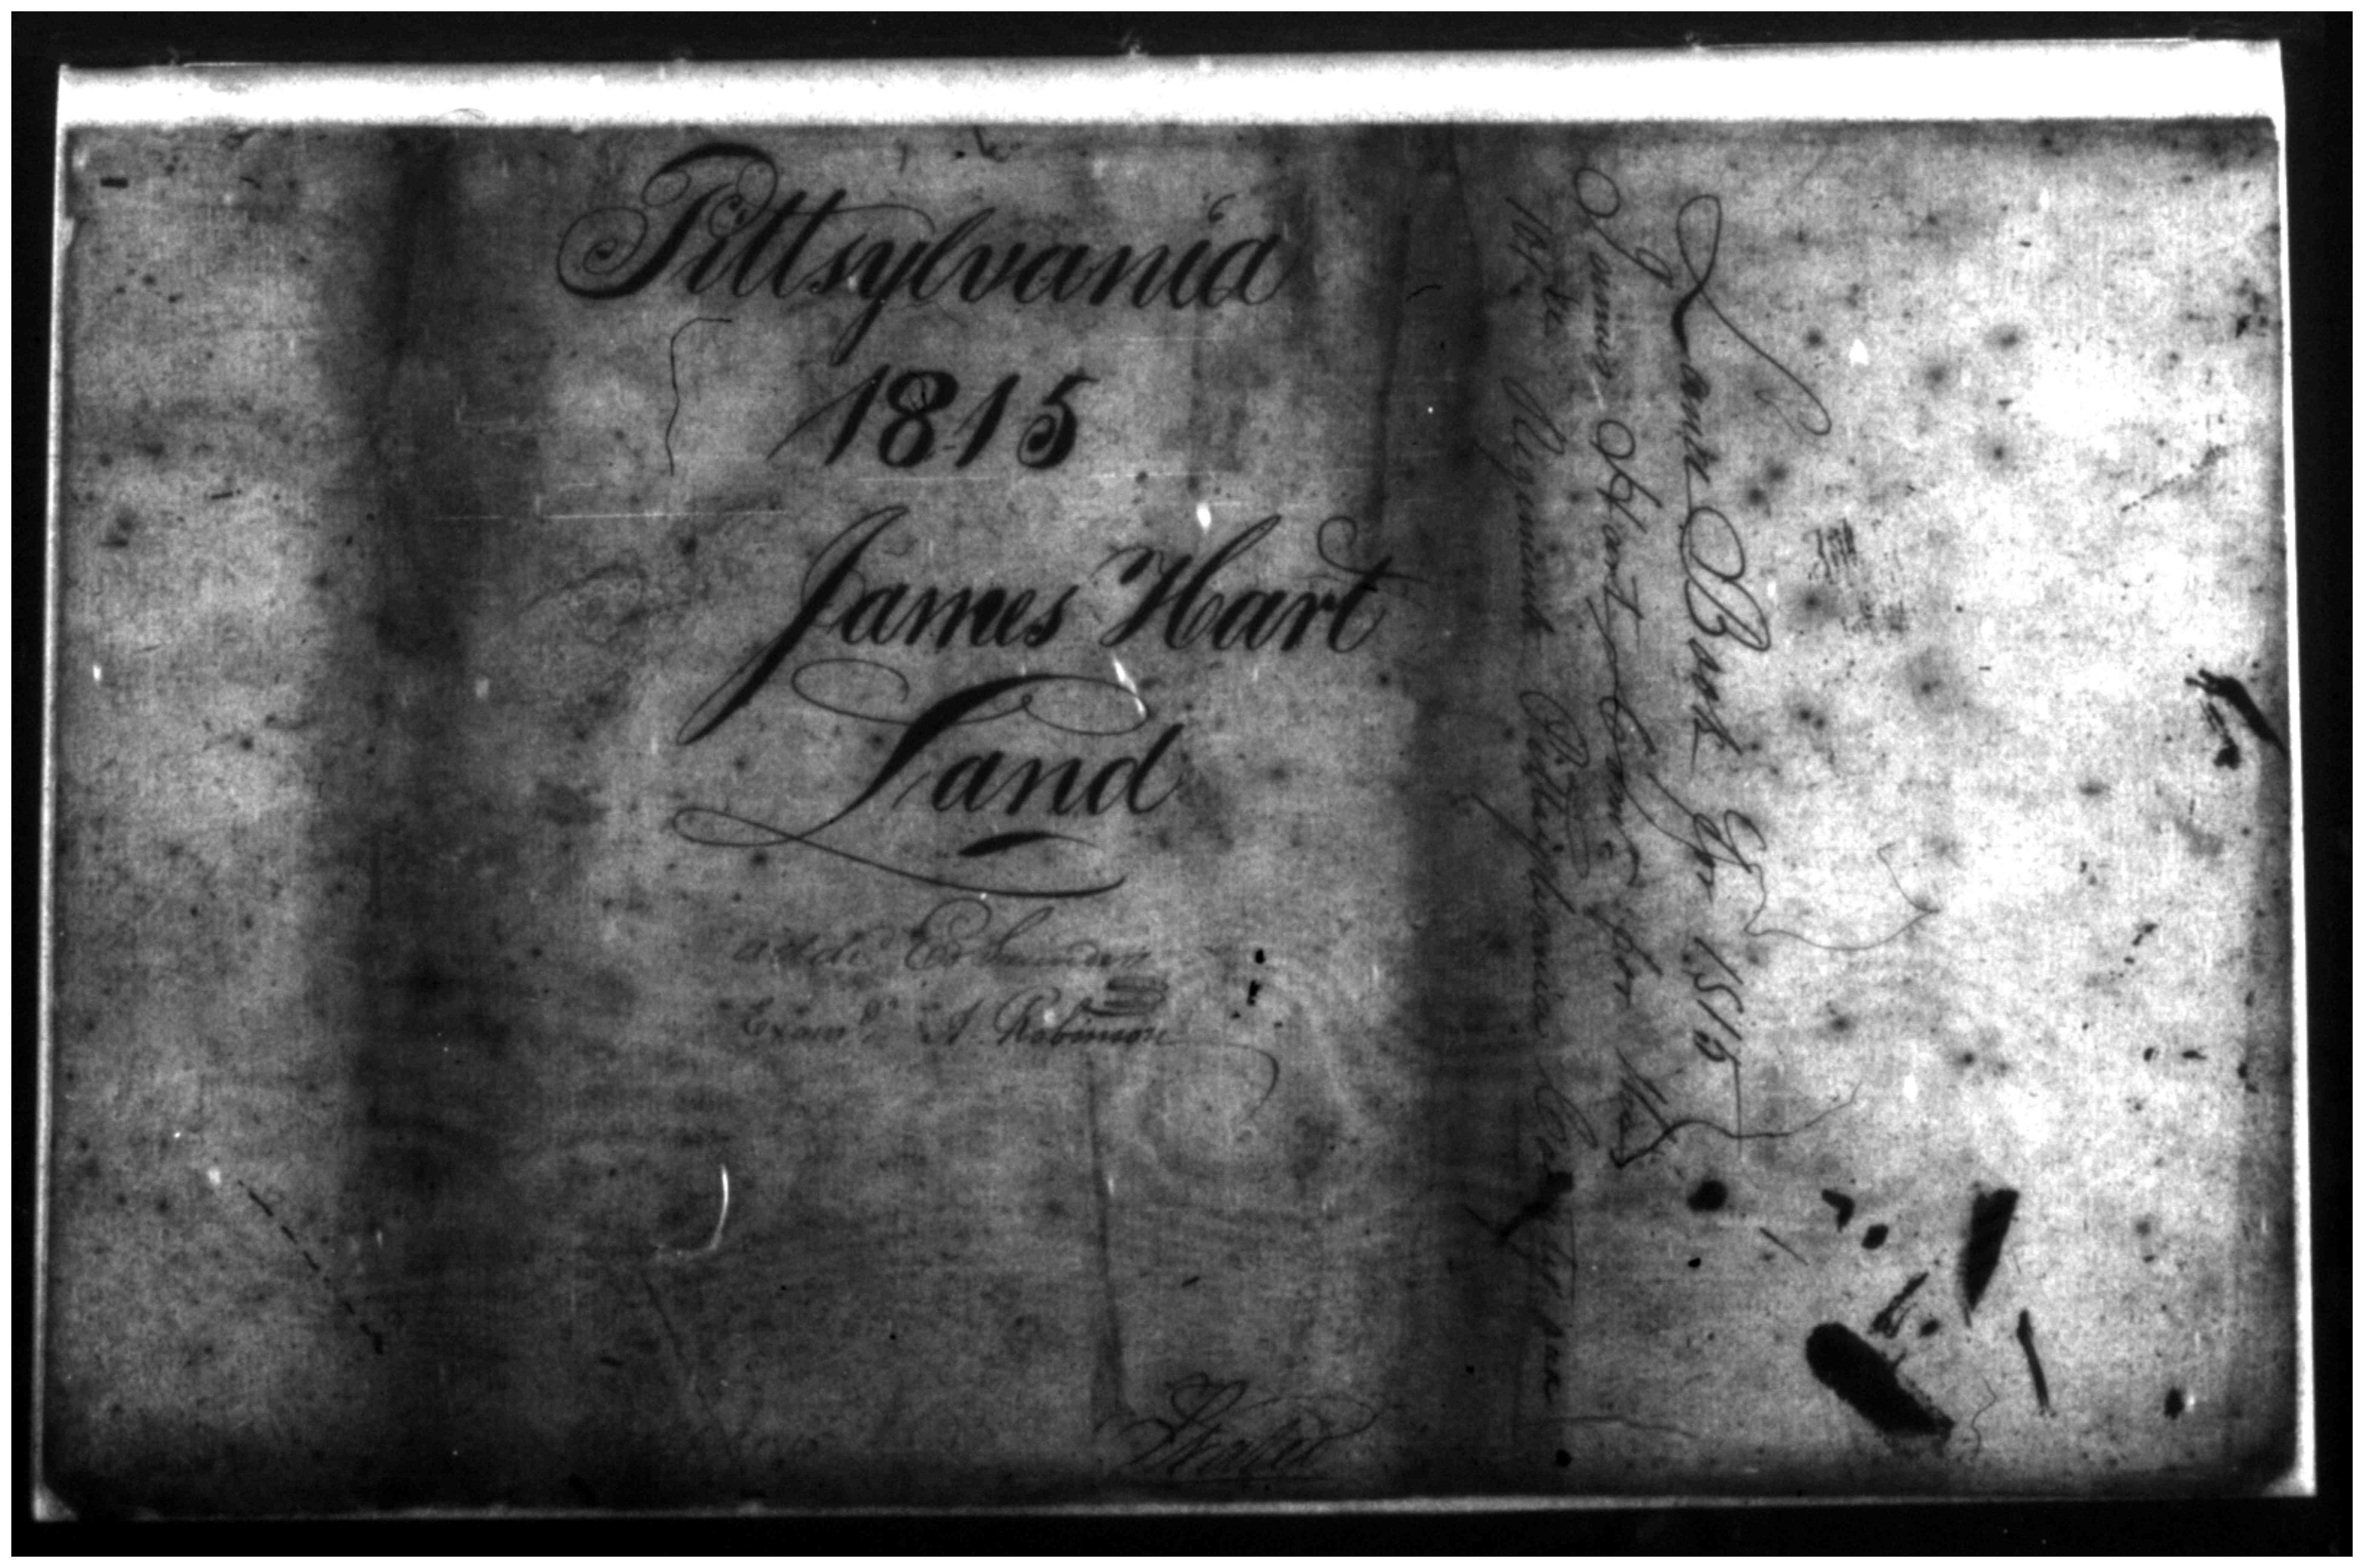 Pittsylvania
1815
James Hart
Land
Exam.d A. Robinson
Land Book for 1815
James Hart Comr for the
Regiment Pittsylvania